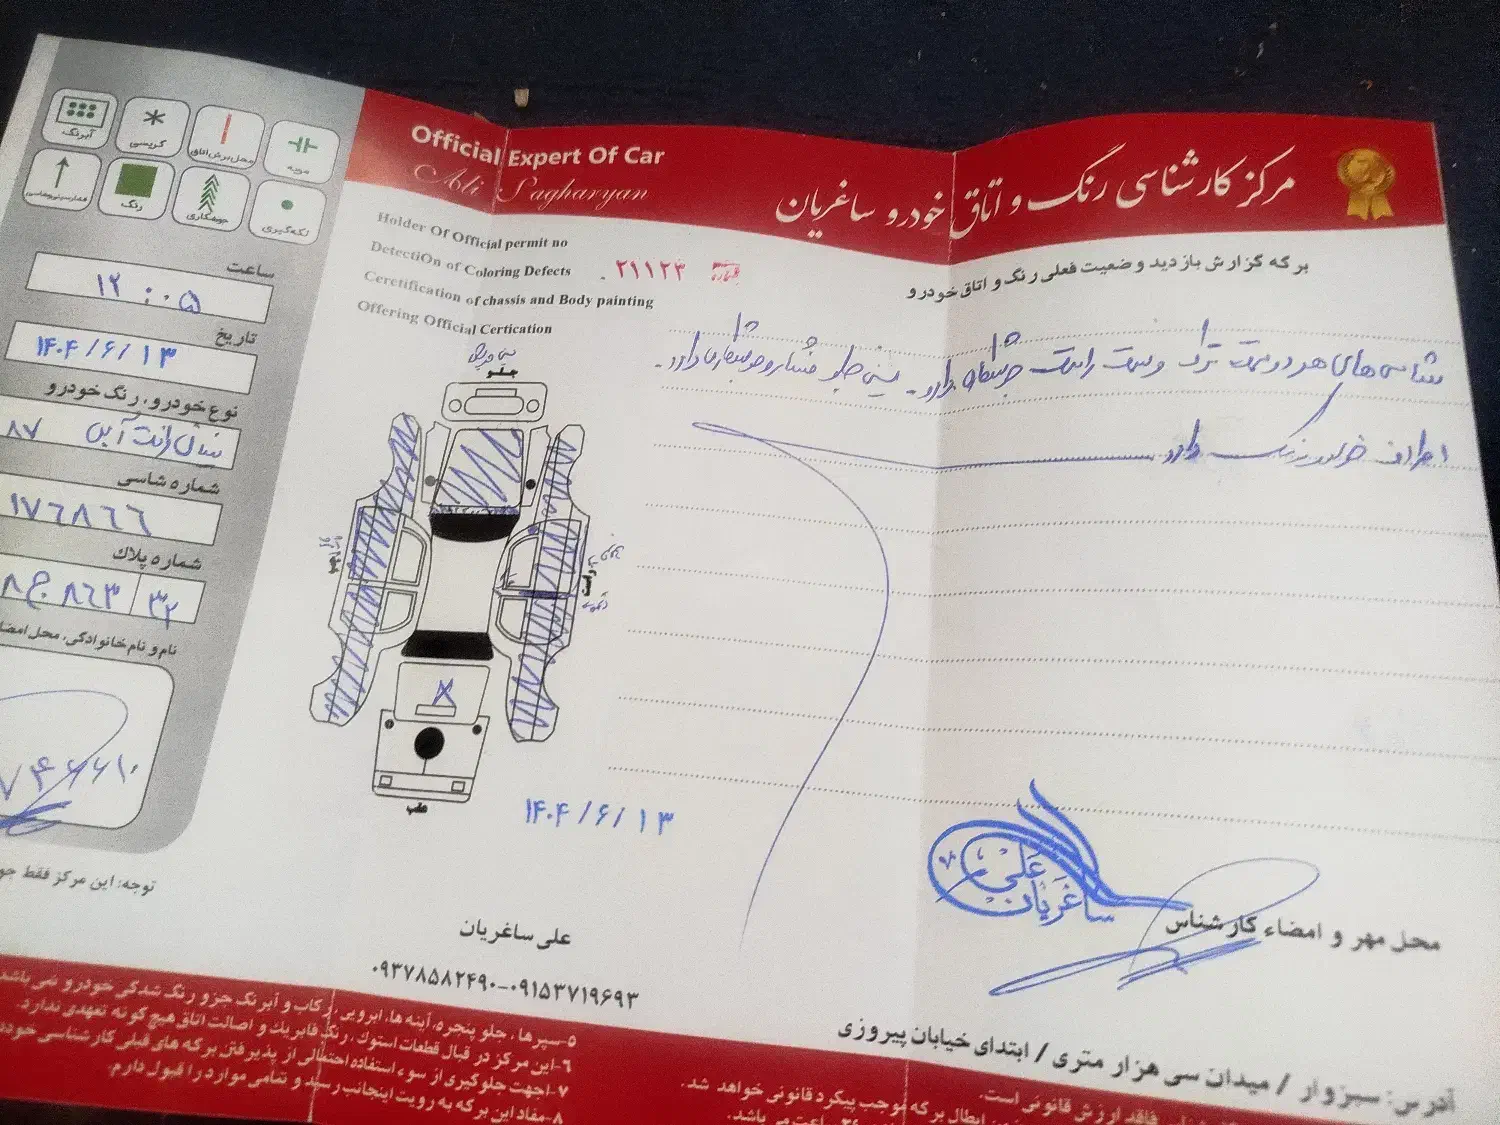 Official Expert Of Car
Ali Sagharyan
مرکز کارشناسی رنگ و اتاق خودرو ساغریان
Holder Of Official permit no
DetectiOn of Coloring Defects
Ceretification of chassis and Body painting
Offering Official Certication
شماره ۲۱۱۲۳
برگه گزارش بازدید وضعیت فعلی رنگ و اتاق خودرو
شاسی های هر دو سمت ترک وسمت راست جوشکاری دارد - سینی جلو فشار و جوشکاری دارد -
اطراف خودرو رنگ دارد
آبرنگ
کرپسی
محل برش اتاق
مویه
رنگ
جوشکاری
لکه گیری
ساعت
۱۲:۰۵
تاریخ
۱۴۰۴/۶/۱۳
نوع خودرو، رنگ خودرو
نیسان وانت آبی ۸۷
شماره شاسی
۱۷۶۸۶۶
شماره پلاک
۳۲ ۸۶۳ ج ۸
نام و نام خانوادگی، محل امضا
جلو
راست
عقب
۱۴۰۴/۶/۱۳
توجه: این مرکز فقط جو
علی ساغریان
۰۹۳۷۸۵۸۲۴۹۰-۰۹۱۵۳۷۱۹۶۹۳
علی ساغریان
محل مهر و امضاء کارشناس
آدرس: سبزوار / میدان سی هزار متری / ابتدای خیابان پیروزی
۵-سپرها، جلو پنجره، آینه ها، ابرویی، رکاب و آبرنگ جزو رنگ شدگی خودرو نمی باشد
۶-این مرکز در قبال قطعات استوک، رنگ فابریک و اصالت اتاق هیچ گونه تعهدی ندارد.
۷-جهت جلوگیری از سوء استفاده احتمالی از پذیرفتن برگه های قبلی کارشناسی خودد
۸-مفاد این برگه به رویت اینجانب رسید و تمامی موارد را قبول دارم.
فاقد ارزش قانونی است.
ابطال برگه موجب پیگرد قانونی خواهد شد.
ساعت می باشد.